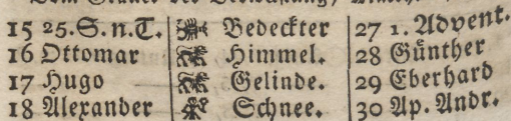 15 25. S. n. T. Bedeckter 27 1. Advent.
16 Ottomar Himmel. 28 Günther
17 Hugo Gelinde. 29 Eberhard
18 Alexander Schnee. 30 Ap. Andr.